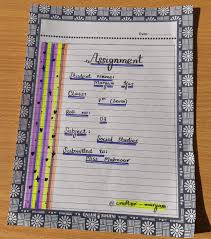 Date:
Assignment
Student name:
Maryam
Class:
7th
Roll no:
03
Subject:
Social Studies
Submitted to:
Miss Mahnoor
@ crafter-maryam